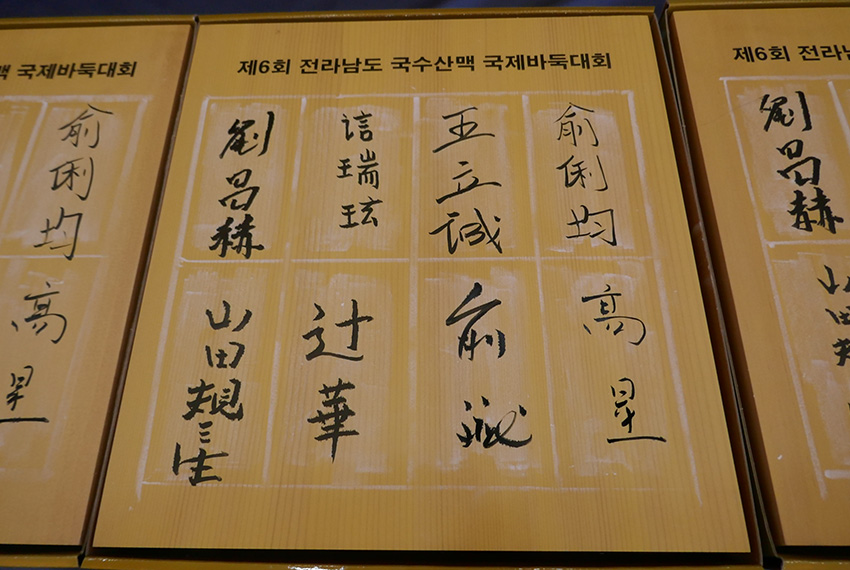 맥 국제바둑대회
俞俐均
高星
제6회 전라남도 국수산맥 국제바둑대회
劉昌赫
瑞玹
王立誠
俞俐均
山田規三生
辻華
俞斌
高星
제6회 전라남
劉昌赫
山田規